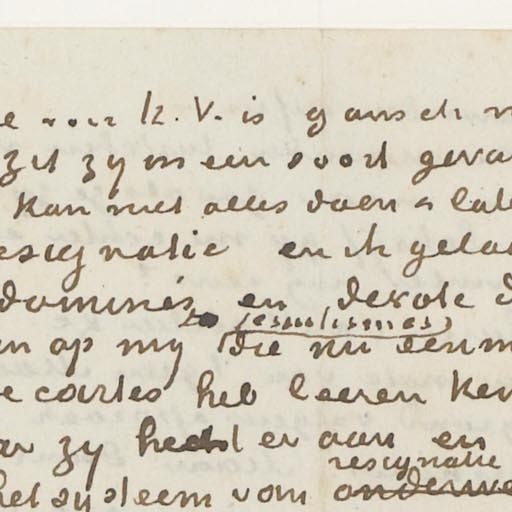 e voor K. V. is gansch n
zit zy in een soort geva
kan niet alles doen & late
resignatie en ik gelo
dominés en devote d
(jesuitismes)
en op my die nu eenm
e cartes heb leeren ken
ar zy hecht er aan en
resignatie
het systeem van onderwe